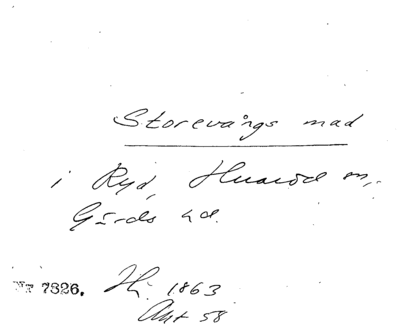 Storevångs mad
i Ryd, Huaröd sn,
Gärds hd.
Nr 7326. Hj. 1863
Akt 58